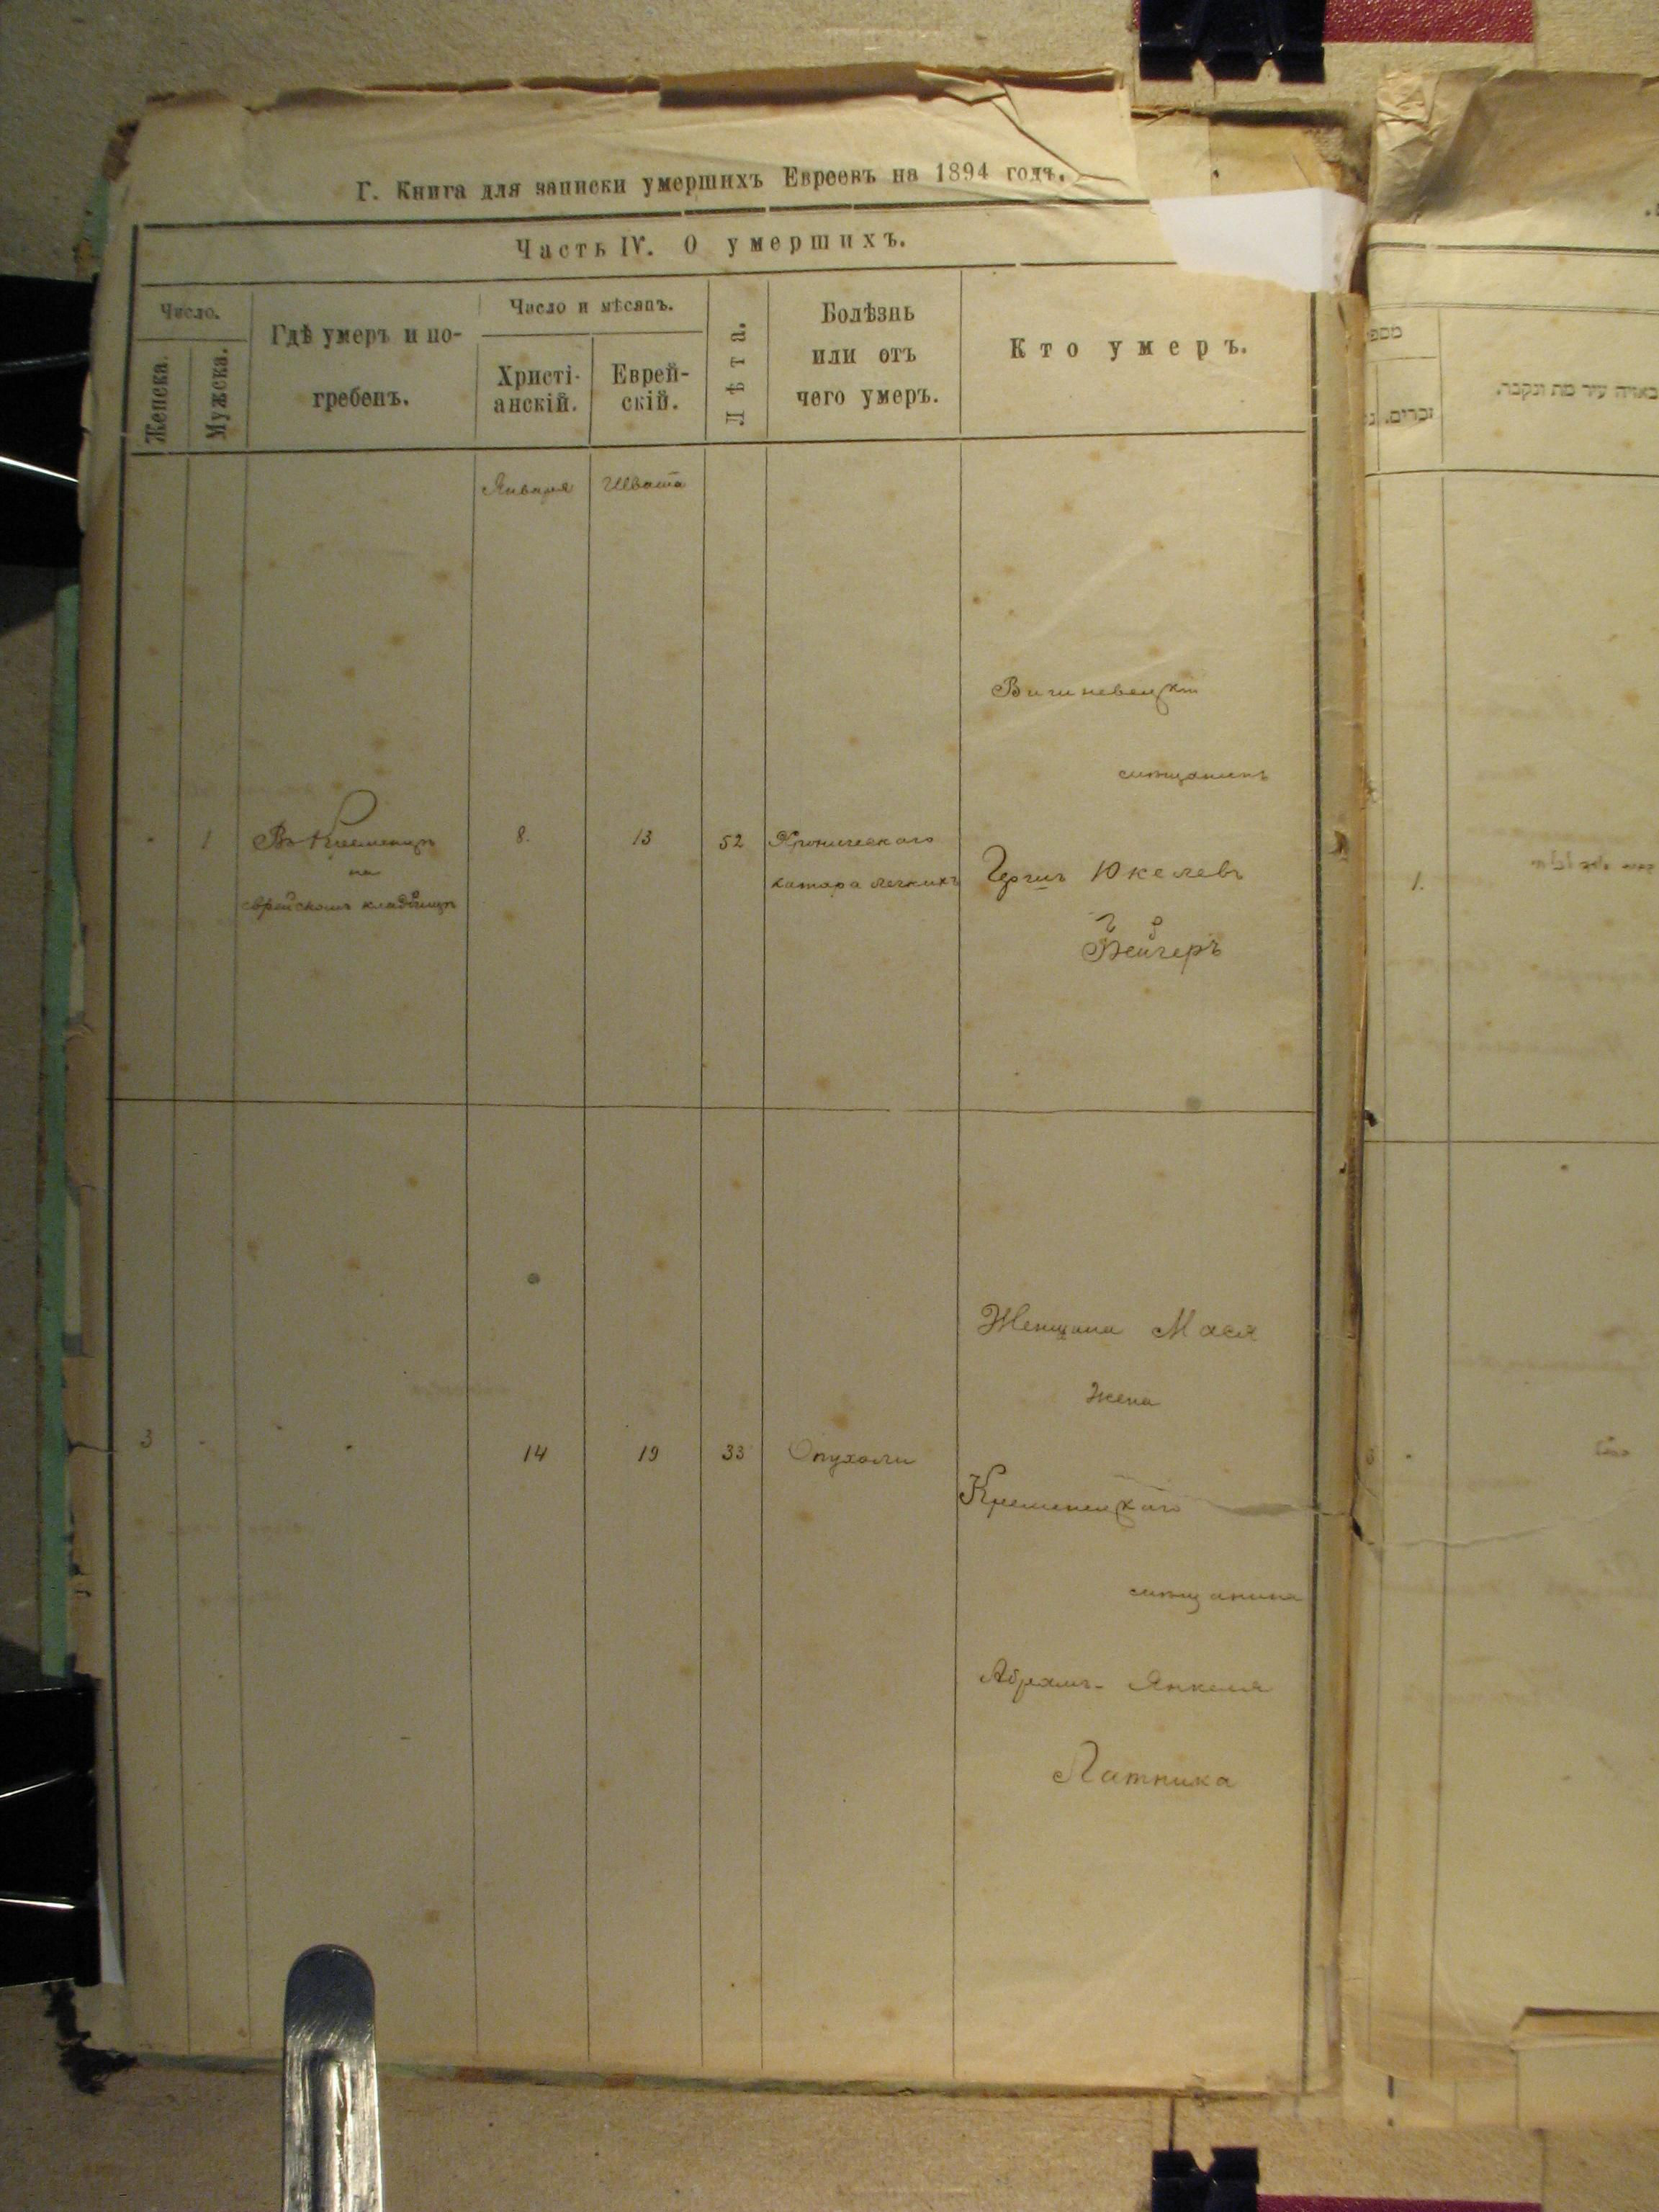 Г. Книга для записки умершихъ Евреевъ на 1894 годъ.
Часть IV. О умершихъ.
Число.
Женска.
Мужска.
Гдѣ умеръ и по-
гребенъ.
Число и мѣсяцъ.
Христі-
анскій.
Еврей-
скій.
Лѣта.
Болѣзнь
или отъ
чего умеръ.
Кто умеръ.
Января
Швата
1
Въ Кременцѣ
на
еврейскомъ кладбищѣ
8.
13
52
Хроническаго
катара легкихъ
Вишневецкій
мѣщанинъ
Гершъ Юкелевъ
Вейгеръ
3
14
19
33
Опухоли
Женщина Мася
жена
Кременецкаго
мѣщанина
Абрамъ-Янкеля
Латника
באיזה עיר מת ונקבר.
זכרים.
1.